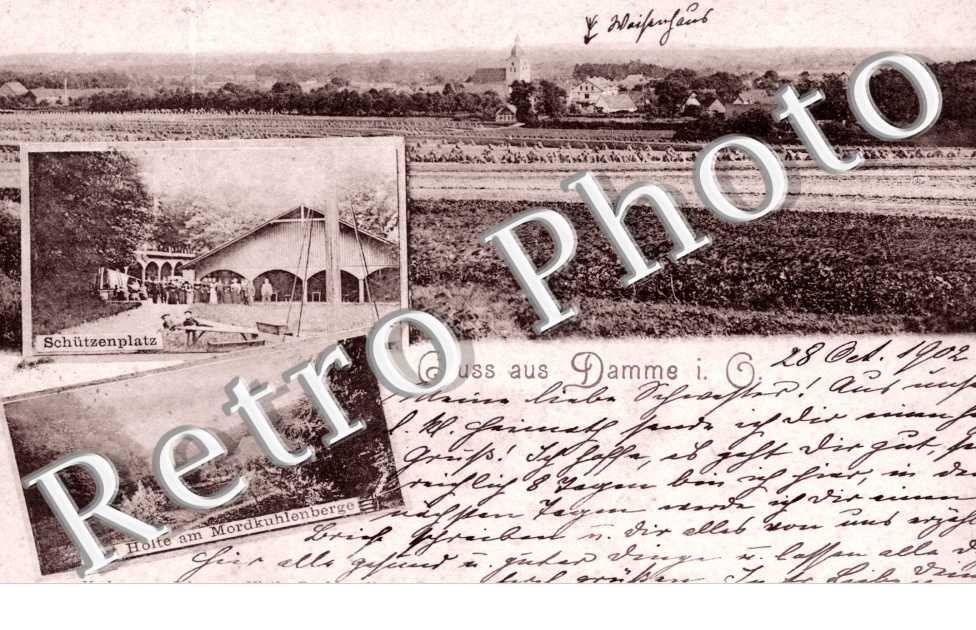 Waisenhaus
Retro Photo
Schützenplatz
Gruss aus Damme i. O
28 Oct. 1902
Meine liebe Schwester! Aus uns
l. W. Heimath sende ich Dir einen
Gruß! Ich hoffe, es geht Dir gut,
reichlich 8 Tagen bin ich hier, in
nächsten Tagen werde ich Dir einen
Brief schreiben u. Dir alles von uns
Hier alle gesund u. guter Dinge u. lassen alle
grüßen
Holte am Mordkuhlenberge